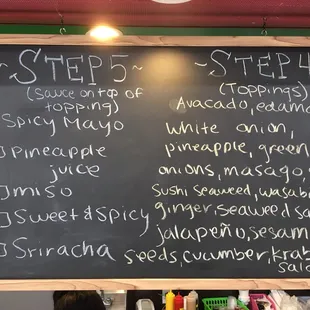 ~STEP 5~
(Sauce on top of
topping)
Spicy Mayo
Pineapple
juice
miso
Sweet & Spicy
Sriracha
~STEP 4
(Toppings)
Avacado, edam
white onion,
pineapple, green
onions, masago,
Sushi Seaweed, wasab
ginger, seaweed sa
jalapeño, sesam
seeds, cucumber, krab
sala